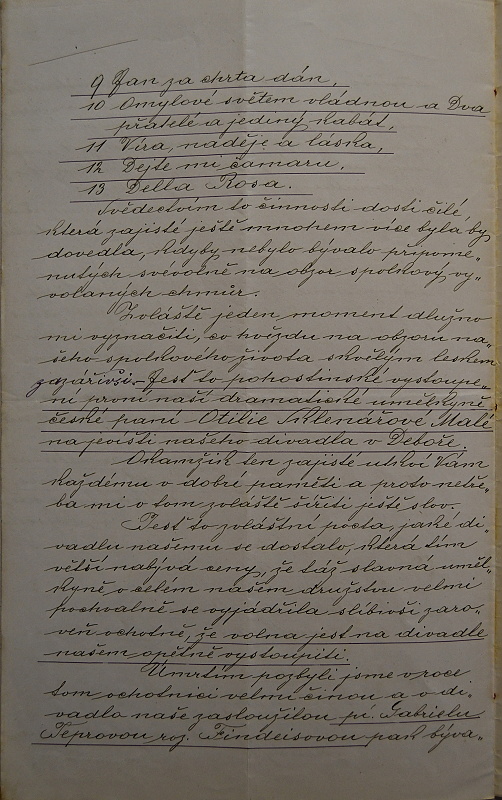 9 Jan za chrta dán,
10 Omylové světem vládnou a Dva
přatelé a jediný kabát,
11 Víra, naděje a láska,
12 Dejte mi čamaru,
13 Della Rosa.
Svědectvím to činnosti dosti čilé,
která zajisté ještě mnohem více byla by
dovedla, kdyby nebylo bývalo připome„
nutých svévolně na obzor spolkový vy„
volaných chmůr.
Zvláště jeden moment dlužno
mi vyznačiti, co hvězdu na obzoru na„
šeho spolkového života skvělým leskem
zazářivší. – Jesť to pohostinské vystoupe„
ní první naší dramatické umělkyně
české paní Otilie Sklenářové Malé
na jevišti našeho divadla v Deboře.
Okamžik ten zajisté utkví Vám
každému v dobré paměti a proto netře„
ba mi o tom zvláště šířiti ještě slov.
Jesť to zvláštní pocta, jaké di„
vadlu našemu se dostalo, která tím
větší nabývá ceny, že táž slavná uměl„
kyně o celém našem družstvu velmi
pochvalně se vyjádřila slíbivši záro„
veň ochotně, že volna jest na divadle
našem opětně vystoupiti.
Úmrtím pozbyli jsme v roce
tom ochotnici velmi činou a o di„
vadlo naše zasloužilou pí. Gabrielu
Peprovou roz. Findeisovou pak býva„